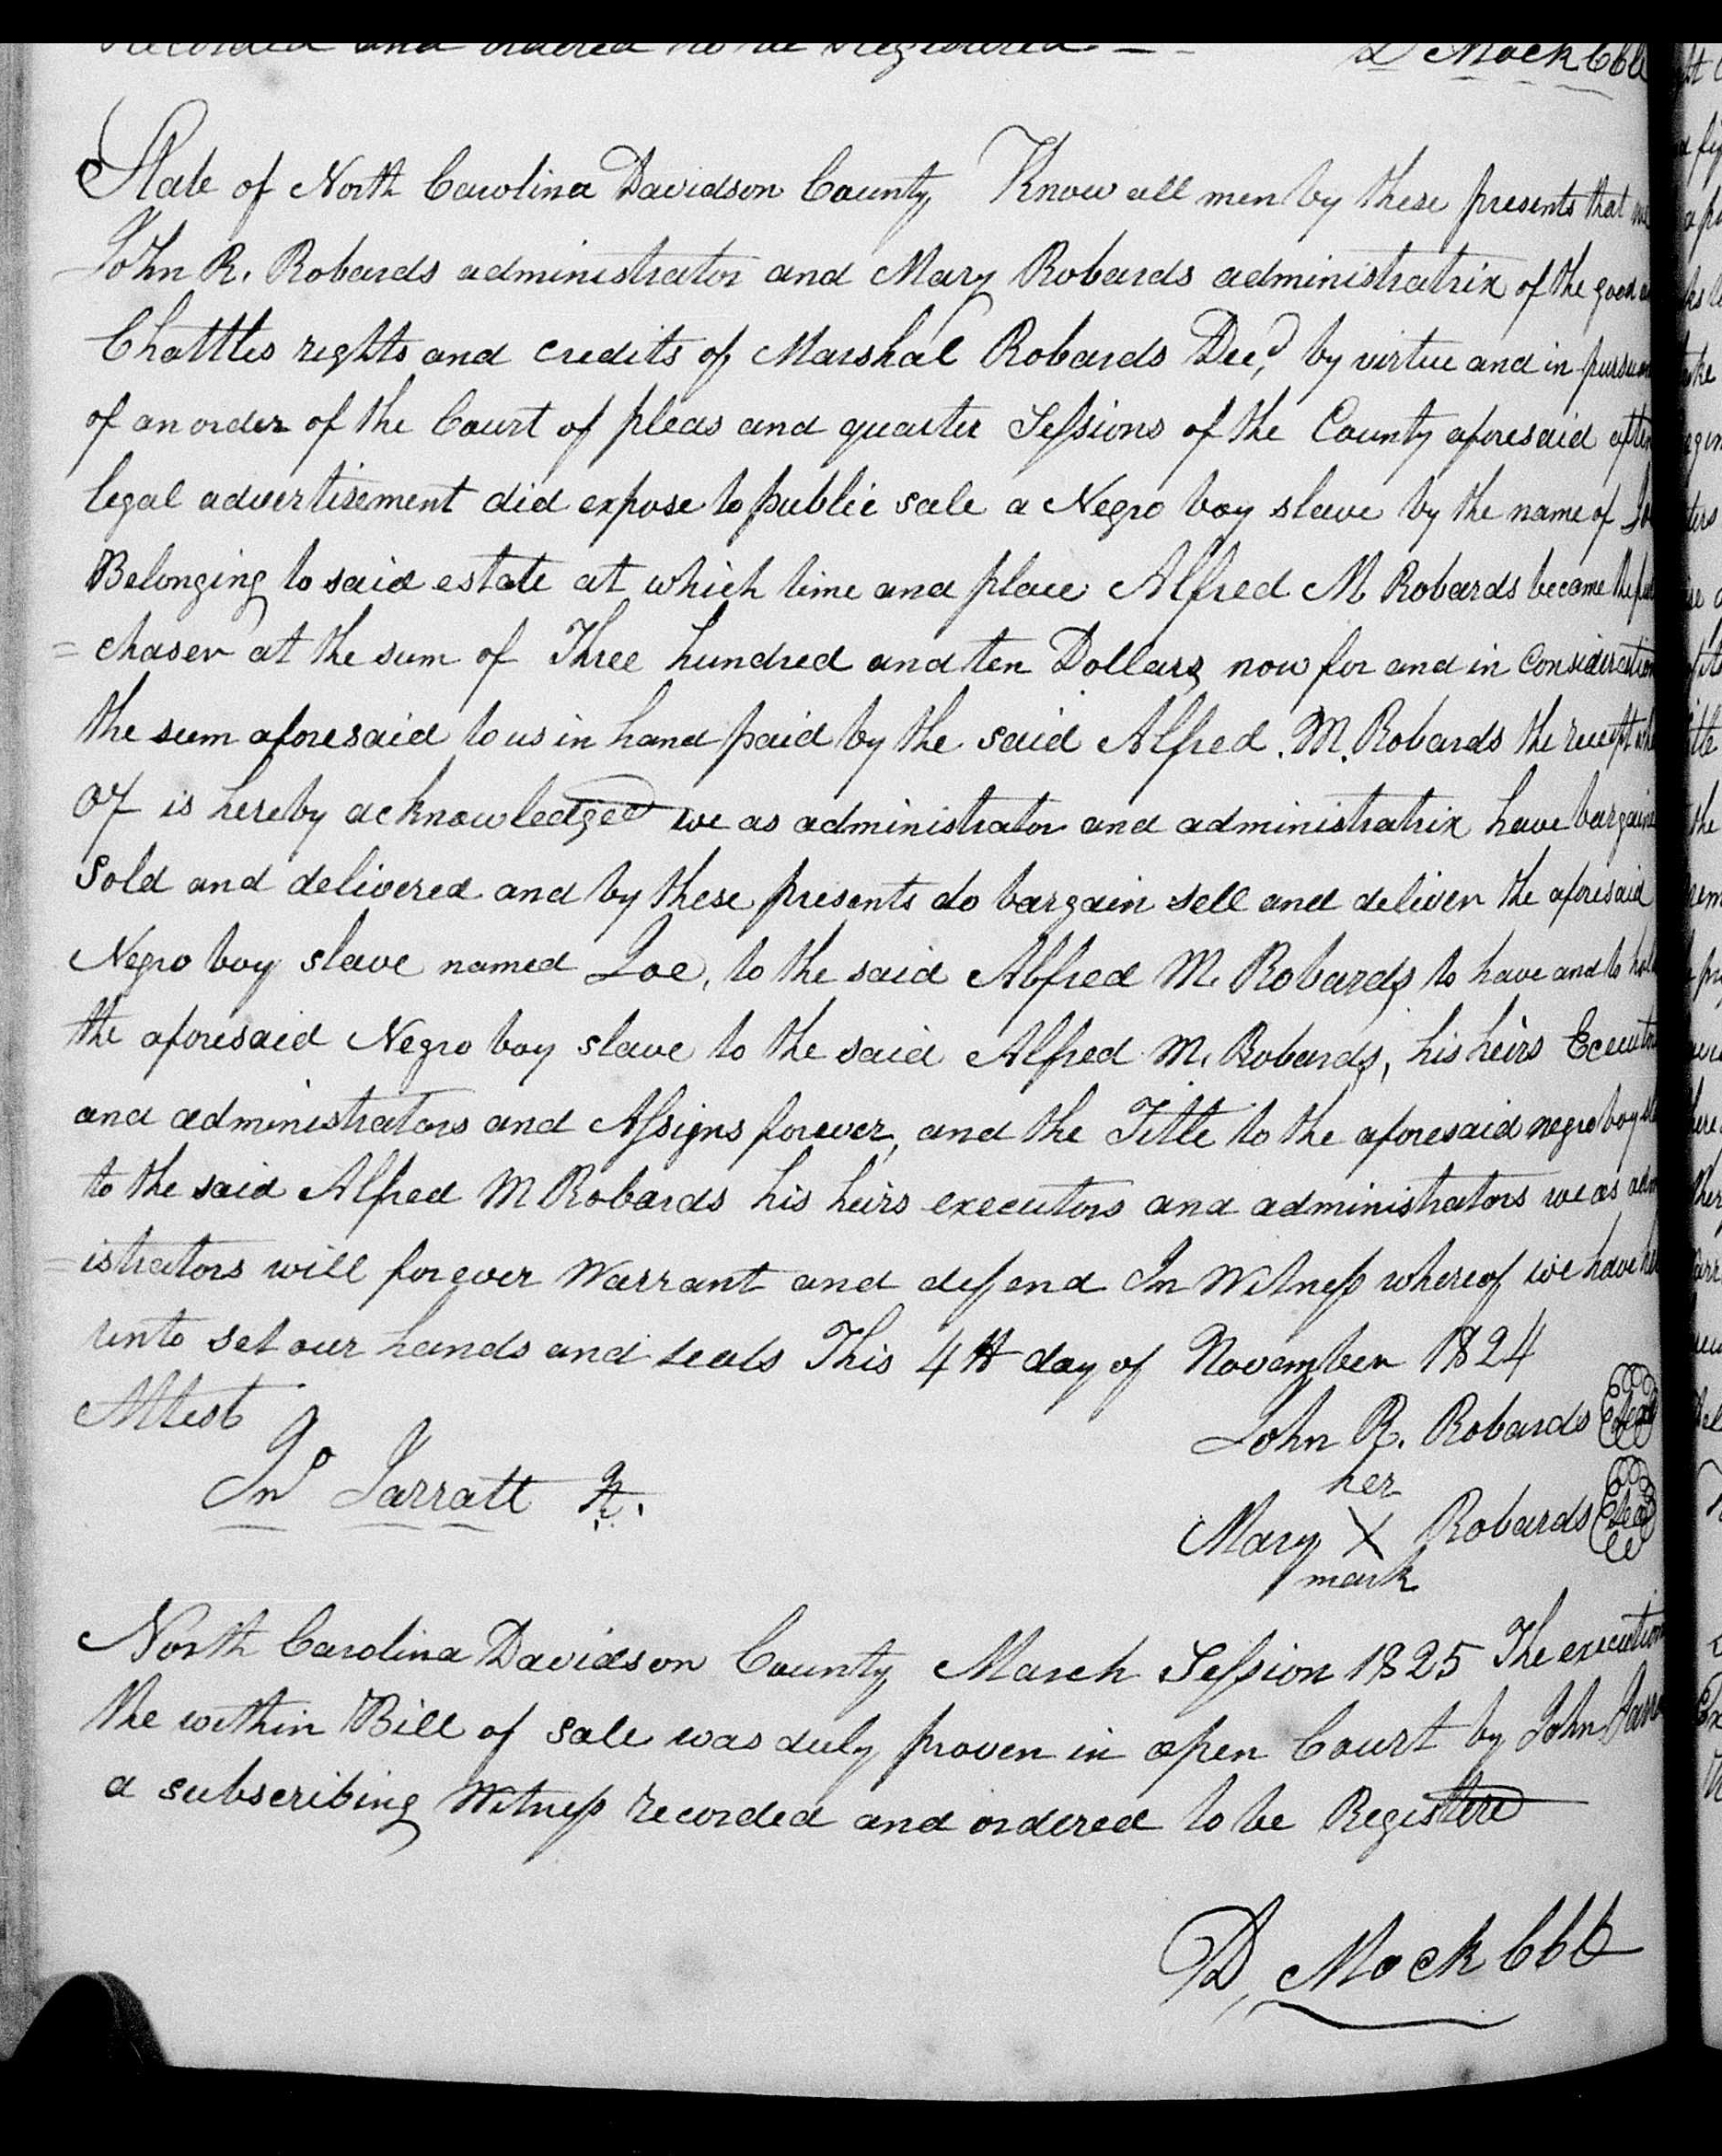 recorded and ordered to be Registered D Mock CCC
State of North Carolina Davidson County Know all men by these presents that we
John R. Robards administrator and Mary Robards administratrix of the good
Chattles rights and credits of Marshal Robards Decd, by virtue and in pursuan
of an order of the Court of pleas and quarter Sessions of the County aforesaid after
legal advertisement did expose to public sale a Negro boy slave by the name of Joe
Belonging to said estate at which time and place Alfred M Robards became the pur
= chaser at the sum of Three hundred and ten Dollars now for and in Consideration
the sum aforesaid to us in hand paid by the said Alfred. M. Robards the receipt whe
of is hereby acknowledged we as administrator and administratrix have bargaine
Sold and delivered and by these presents do bargain sell and deliver the aforesaid
Negro boy slave named Joe, to the said Alfred M. Robards to have and to hold
the aforesaid Negro boy slave to the said Alfred M. Robards, his heirs Ececutors
and administrators and Assigns forever, and the Title to the aforesaid negro boy sla
to the said Alfred M Robards his heirs executors and administrators we as admin
= istrators will forever Warrant and defend In Witness whereof we have her
unto set our hands and seals This 4th day of November 1824
Attest
John R. Robards Seal
Jno Jarratt Jr.
her
Mary X Robards Seal
mark
North Carolina Davidson County March Session 1825 The execution
the within Bill of sale was duly proven in open Court by John Jarra
a subscribing Witness recorded and ordered to be Registere
D, Mock CCC